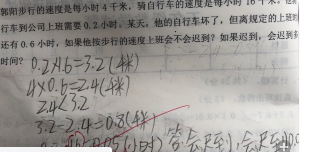 郭阳步行的速度是每小时4千米，骑自行车的速度是每小时16千米，他
行车到公司上班需要0.2小时。某天，他的自行车坏了，但离规定的上班时
还有0.6小时，如果他按步行的速度上班会不会迟到？如果迟到，会迟到多
时间？
0.2×16=3.2(千米)
4×0.6=2.4(千米)
2.4<3.2
3.2-2.4=0.8(千米)
答:会迟到,会迟到0.0